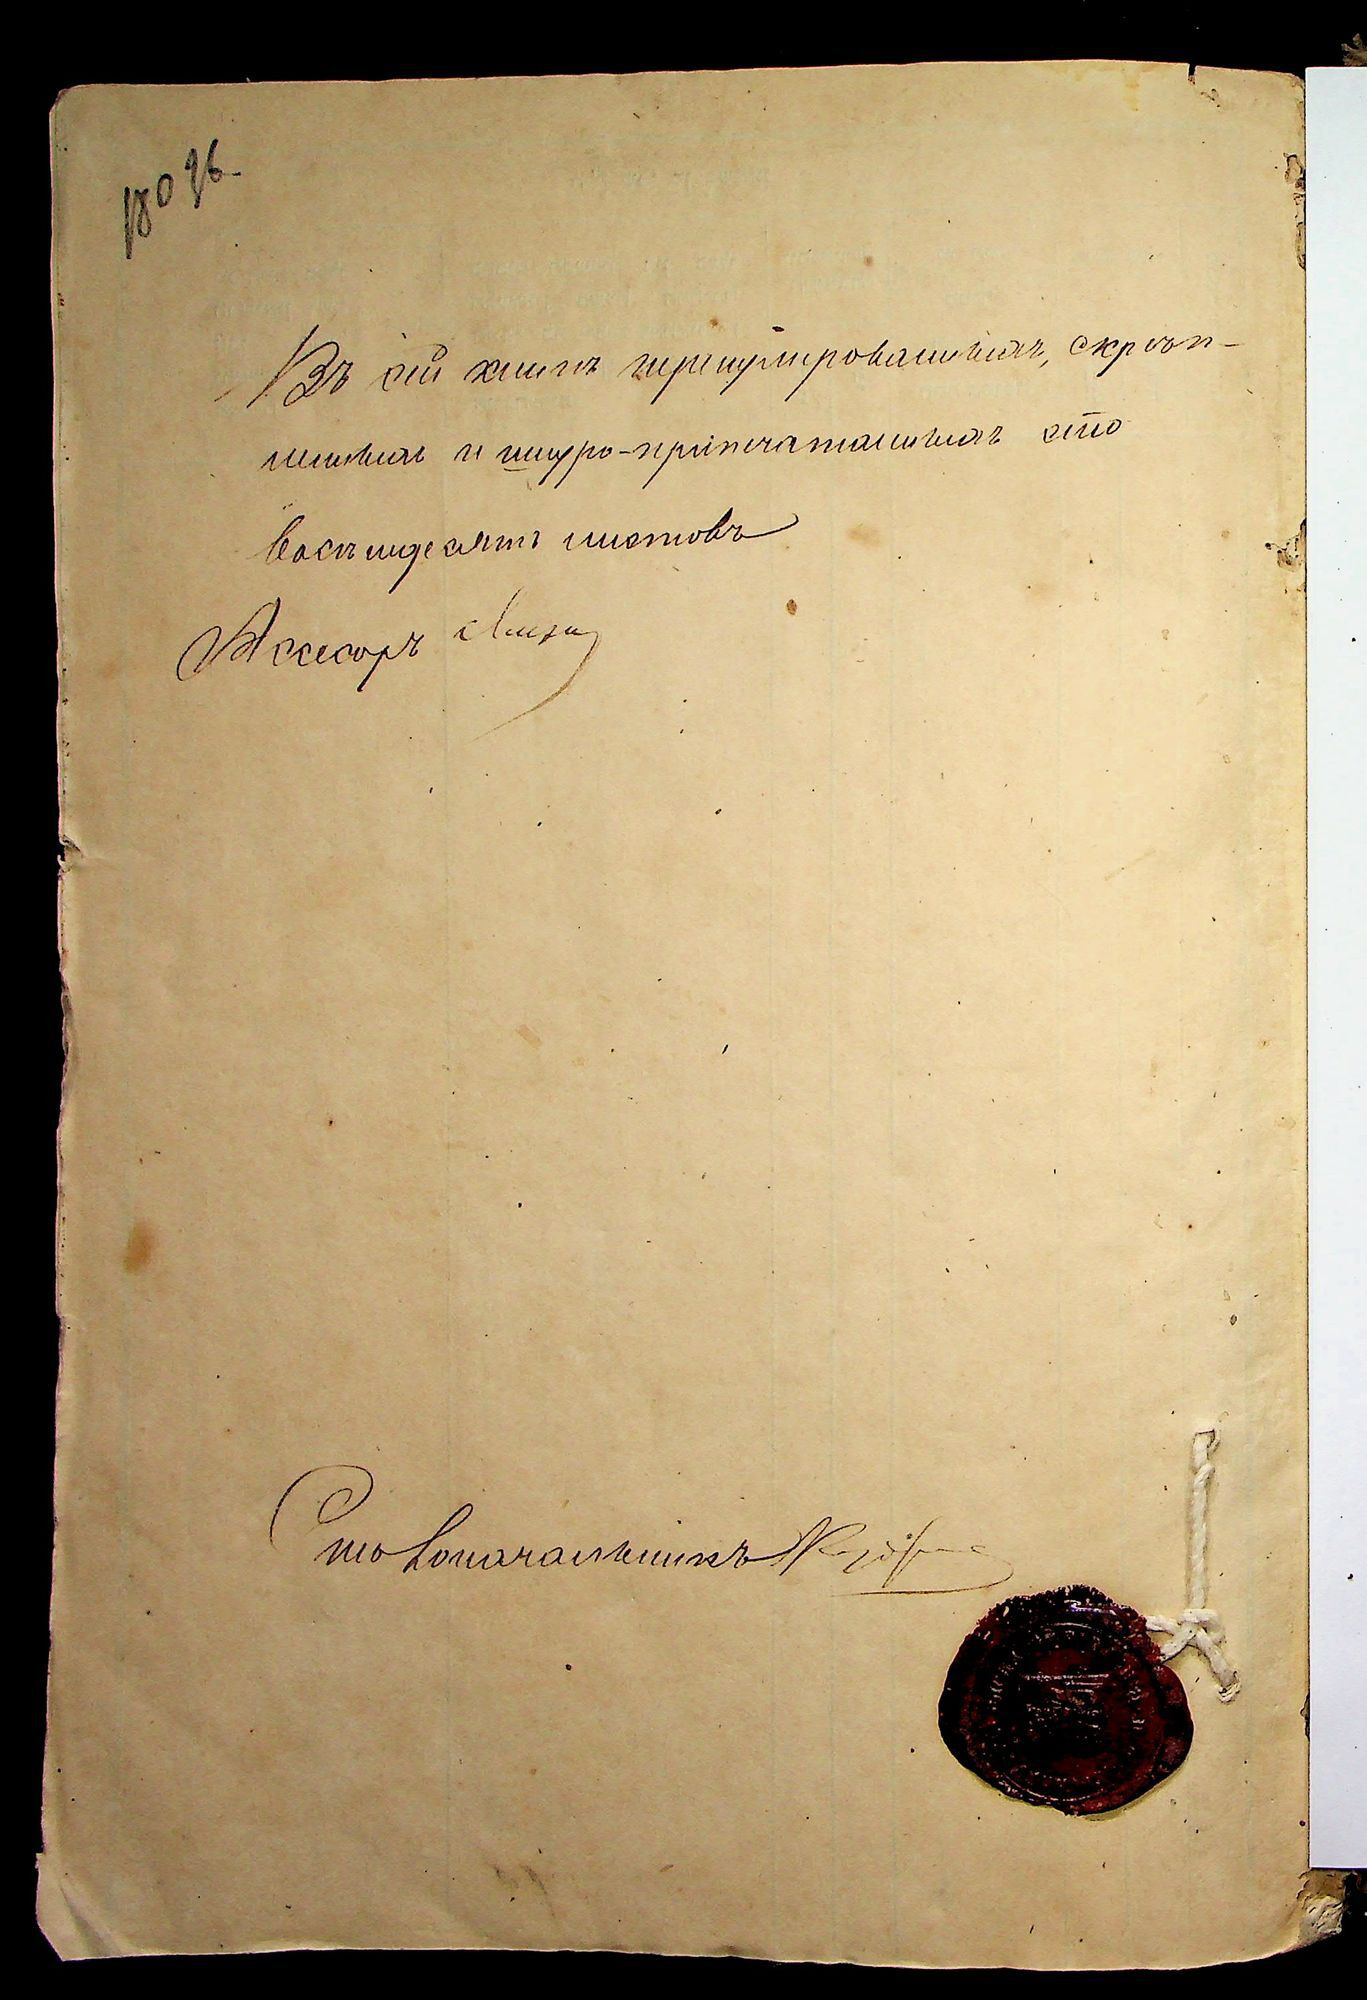 180 я б.
Въ сей книгѣ перенумерованныхъ, скрѣп-
ленныхъ и шнуро-припечатанныхъ сто
восемьдесятъ листовъ
Ассесоръ
Столоначальникъ